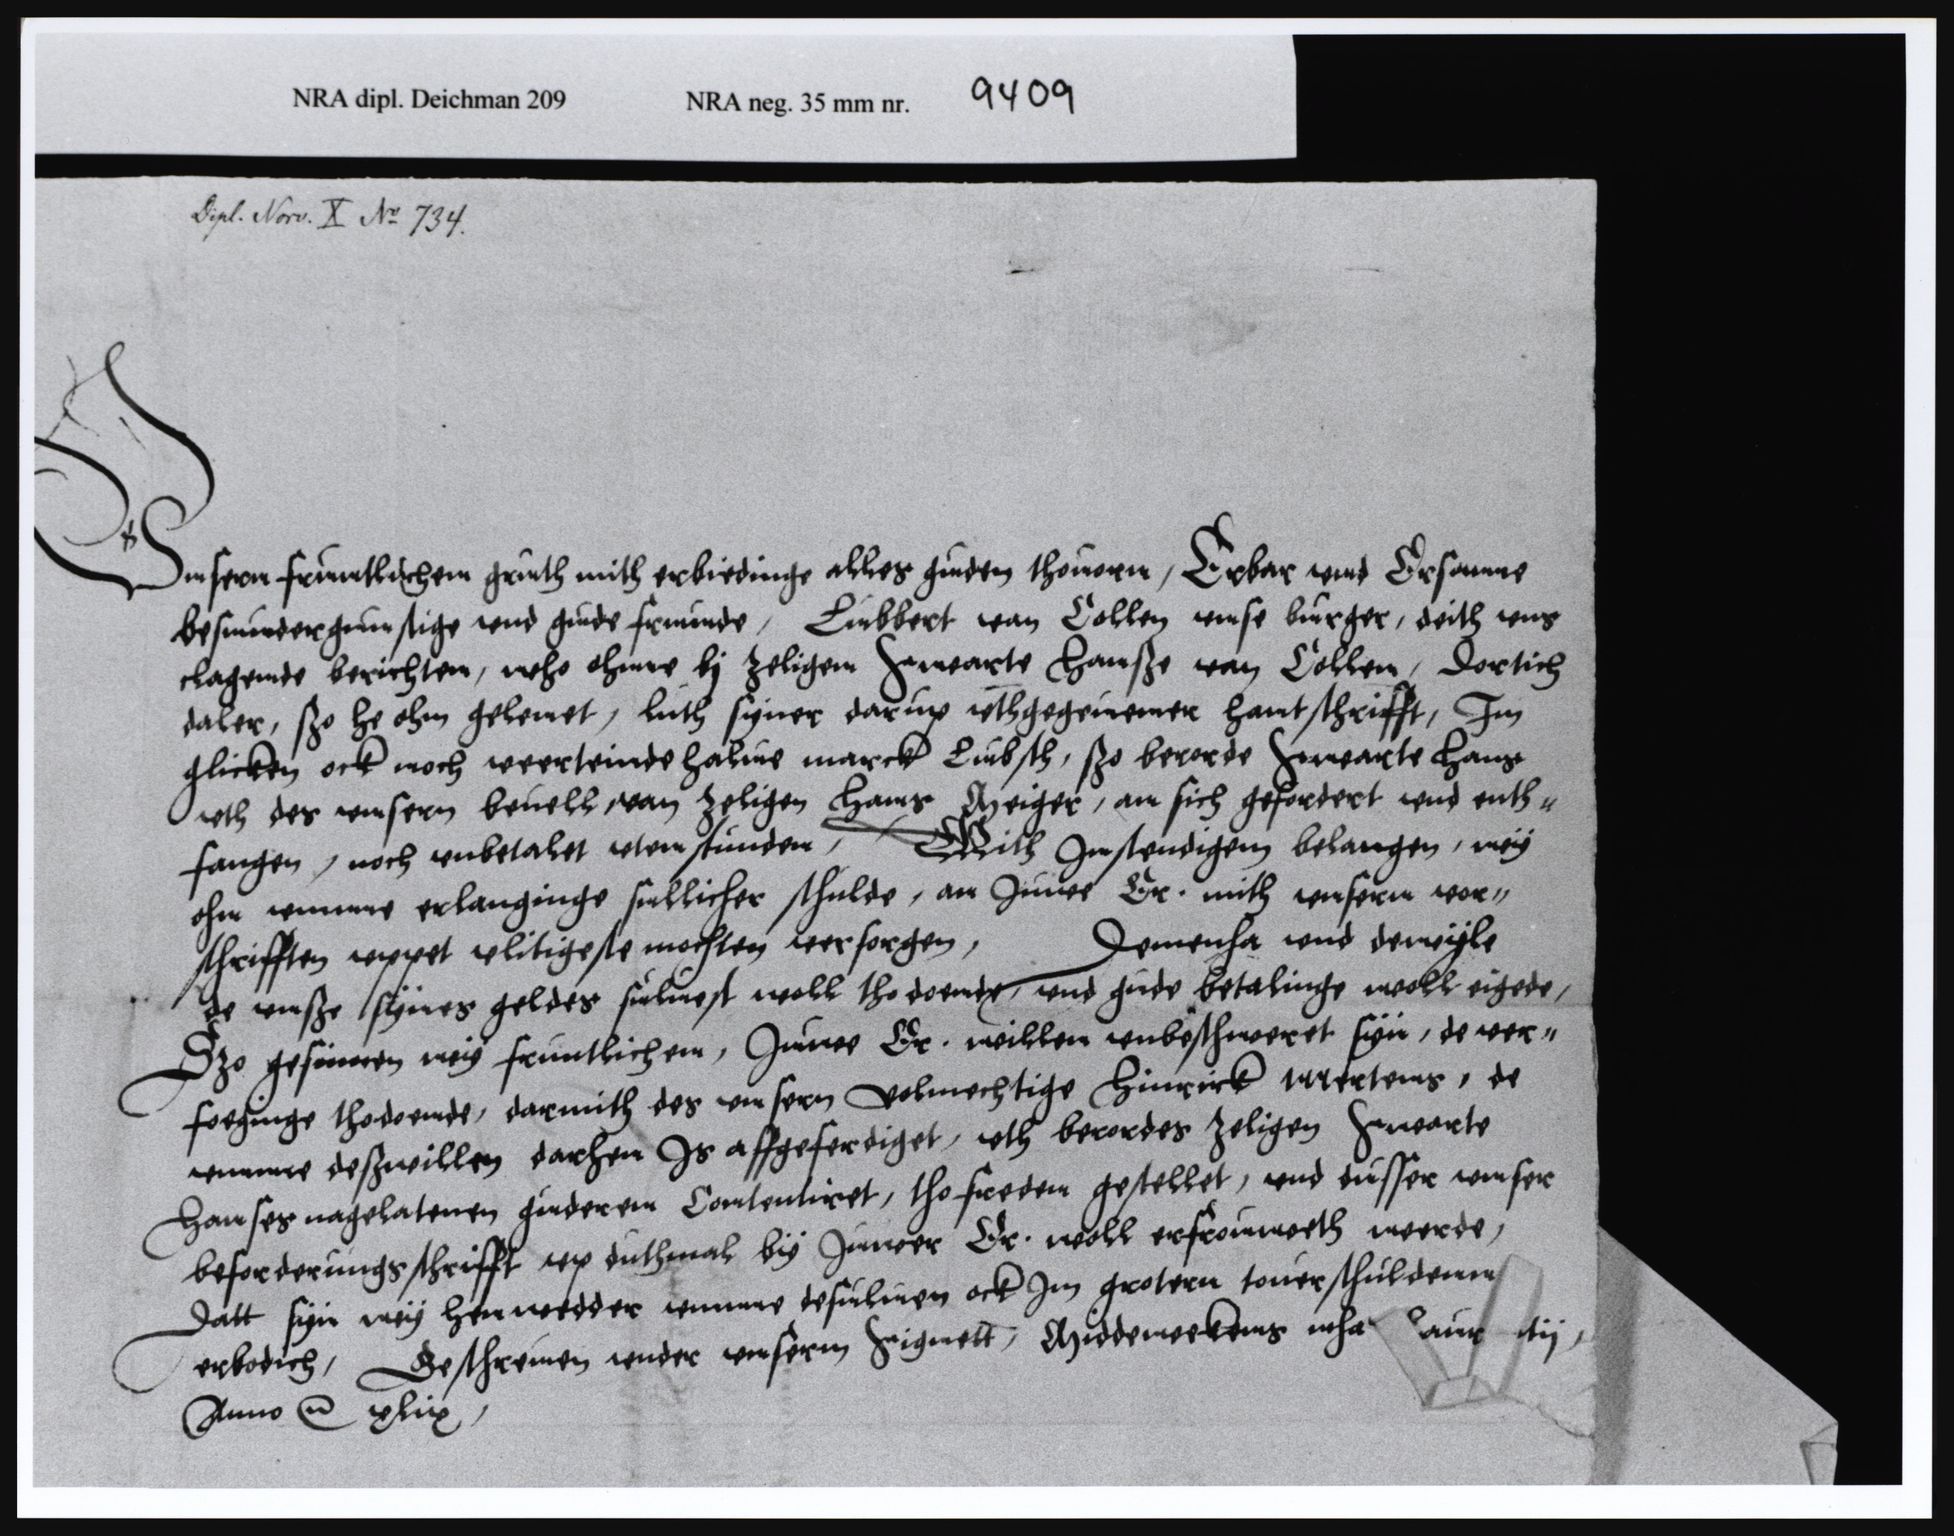 NRA dipl. Deichman 209 NRA neg. 35 mm nr. 9409
Dipl. Norv. X No 734.
Vnsern fruntlichem gruth mith erbiedinge alles guden thouorn, Erbar vnd Ersamme
besundergunstige vnd gude frunde, Lubbert van Collen vnse burger, deith vns
clagende berichten, who ohme bj zeligem Swarte Hansze van Collen, dortich
daler, szo he ohm gelenet, luth syner darup vthgegeuener hantschrifft, Im
glicken ock noch veerteindehalue marck Lubsch, szo berorde Swarte Hans
vth des vnsern beuell, van zeligen Hans Meiger, an sich gefordert vnd enth"
fangen, noch vnbetalet vtenstunden, With Instendigem belangen, wy
ohm vmme erlanginge sullicher schulde, an Juwe Er. mith vnsern vor"
schrifften vppet vlitigeste mochten versorgen, Demenha vnd dewyle
de vnsze synes geldes suluest woll tho doende, vnd gude betalinge woll eigede,
Szo gesinnen wy fruntlichem, Juwe Er. willen vnbeschweret syn, de ver"
foeginge thodoende, darmith des vnsern volmechtige Hinrick Mertens, de
vmme deszwillen darhen Is affgeferdiget, vth berordes zeligen Swarte
Hanses nagelatenen guderen Contentiret, tho freden gestellet, vnd dusser vnser
beforderungsschrifft vp duthmal by Juwer Er. woll erfrouweth werde,
Datt syn wy henwedder vmme desuluen ock Im grotern touerschuldenn
erbodich, Geschreuen vnder vnserm Signett, Middewekens nha Laur tij,
Anno &c xlix,